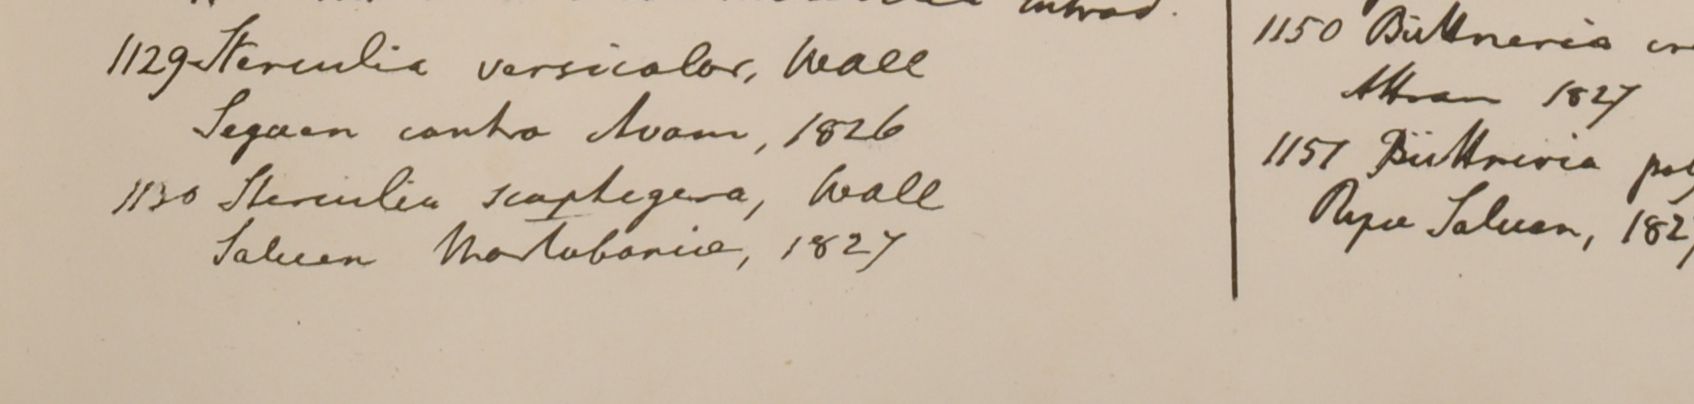 introd.
1129 Sterculia versicolor, Wall
Segaen contra Avam, 1826
1130 Sterculia scaphigera, Wall
Saluen Martabaniæ, 1827
1150 Büttneria
Attran 1827
1151 Büttneria
Ripæ Saluen, 1827